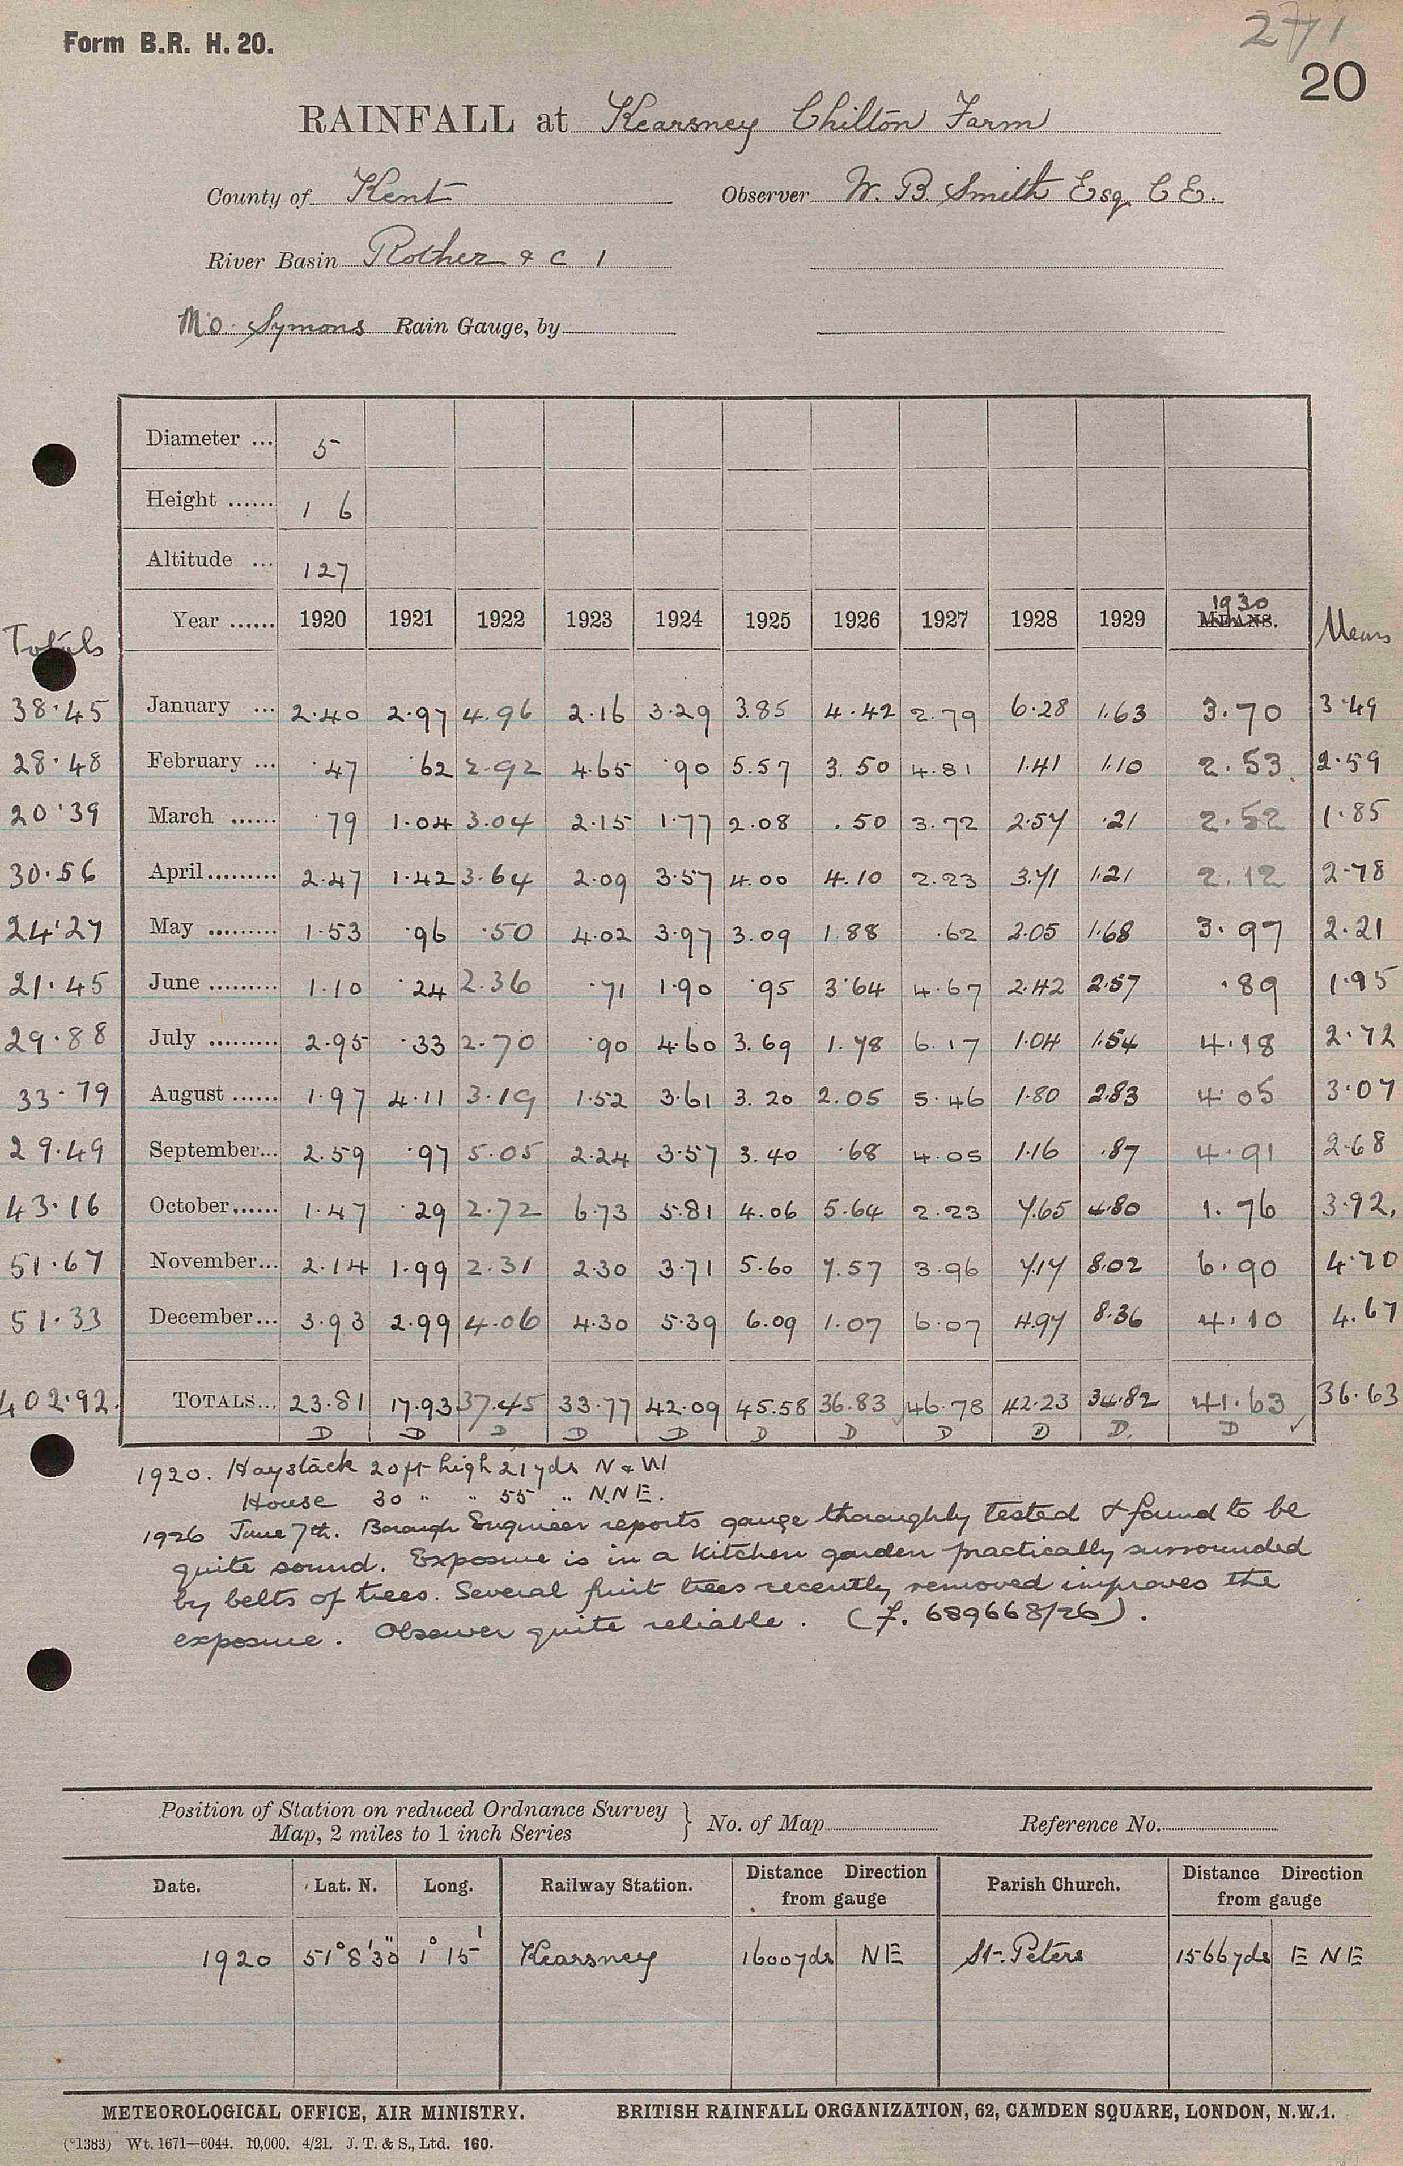 Form B.R. H. 20.
271
20
RAINFALL at Kearsney Chilton Farm
County of Kent Observer W. B. Smith Esq C E.
River Basin Rother & c 1
M.O. Symons Rain Gauge, by
Diameter ... 5
Height ...... 1 6
Altitude ... 127
Totals Year ...... 1920 1921 1922 1923 1924 1925 1926 1927 1928 1929 1930 MEANS. Means
38.45 January ... 2.40 2.97 4.96 2.16 3.29 3.85 4.42 2.79 6.28 1.63 3.70 3.49
28.48 February ... .47 .62 2.92 4.65 .90 5.57 3.50 4.81 1.41 1.10 2.53 2.59
20.39 March ...... .79 1.04 3.04 2.15 1.77 2.08 .50 3.72 2.57 .21 2.52 1.85
30.56 April ......... 2.47 1.42 3.64 2.09 3.57 4.00 4.10 2.23 3.71 1.21 2.12 2.78
24.27 May ......... 1.53 .96 .50 4.02 3.97 3.09 1.88 .62 2.05 1.68 3.97 2.21
21.45 June ......... 1.10 .24 2.36 .71 1.90 .95 3.64 4.67 2.42 2.57 .89 1.95
29.88 July ......... 2.95 .33 2.70 .90 4.60 3.69 1.78 6.17 1.04 1.54 4.18 2.72
33.79 August ...... 1.97 4.11 3.19 1.52 3.61 3.20 2.05 5.46 1.80 2.83 4.05 3.07
29.49 September... 2.59 .97 5.05 2.24 3.57 3.40 .68 4.05 1.16 .87 4.91 2.68
43.16 October...... 1.47 .29 2.72 6.73 5.81 4.06 5.64 2.23 7.65 4.80 1.76 3.92.
51.67 November... 2.14 1.99 2.31 2.30 3.71 5.60 7.57 3.96 7.17 8.02 6.90 4.70
51.33 December... 3.93 2.99 4.06 4.30 5.39 6.09 1.07 6.07 4.97 8.36 4.10 4.67
402.92. TOTALS... 23.81 17.93 37.45 33.77 42.09 45.58 36.83 46.78 42.23 34.82 41.63 36.63
D D D D D D D D D D. D
1920. Haystack 20ft high 21yds N & W
House 30 " " 55 " N.N E.
1926 June 7th. Borough Engineer reports gauge thoroughly tested & found to be
quite sound. Exposure is in a kitchen garden practically surrounded
by belts of trees. Several fruit trees recently removed improves the
exposure. Observer quite reliable. (f. 689668/26).
Position of Station on reduced Ordnance Survey
Map, 2 miles to 1 inch Series } No. of Map Reference No.
Date. Lat. N. Long. Railway Station. Distance Direction from gauge Parish Church. Distance Direction from gauge
1920 51° 8' 30" 1° 15' Kearsney 1600yds NE St. Peters 1566yds E N E
METEOROLOGICAL OFFICE, AIR MINISTRY. BRITISH RAINFALL ORGANIZATION, 62, CAMDEN SQUARE, LONDON, N.W.1.
(*1383) Wt. 1671—6044. 10,000. 4/21. J. T. & S., Ltd. 160.